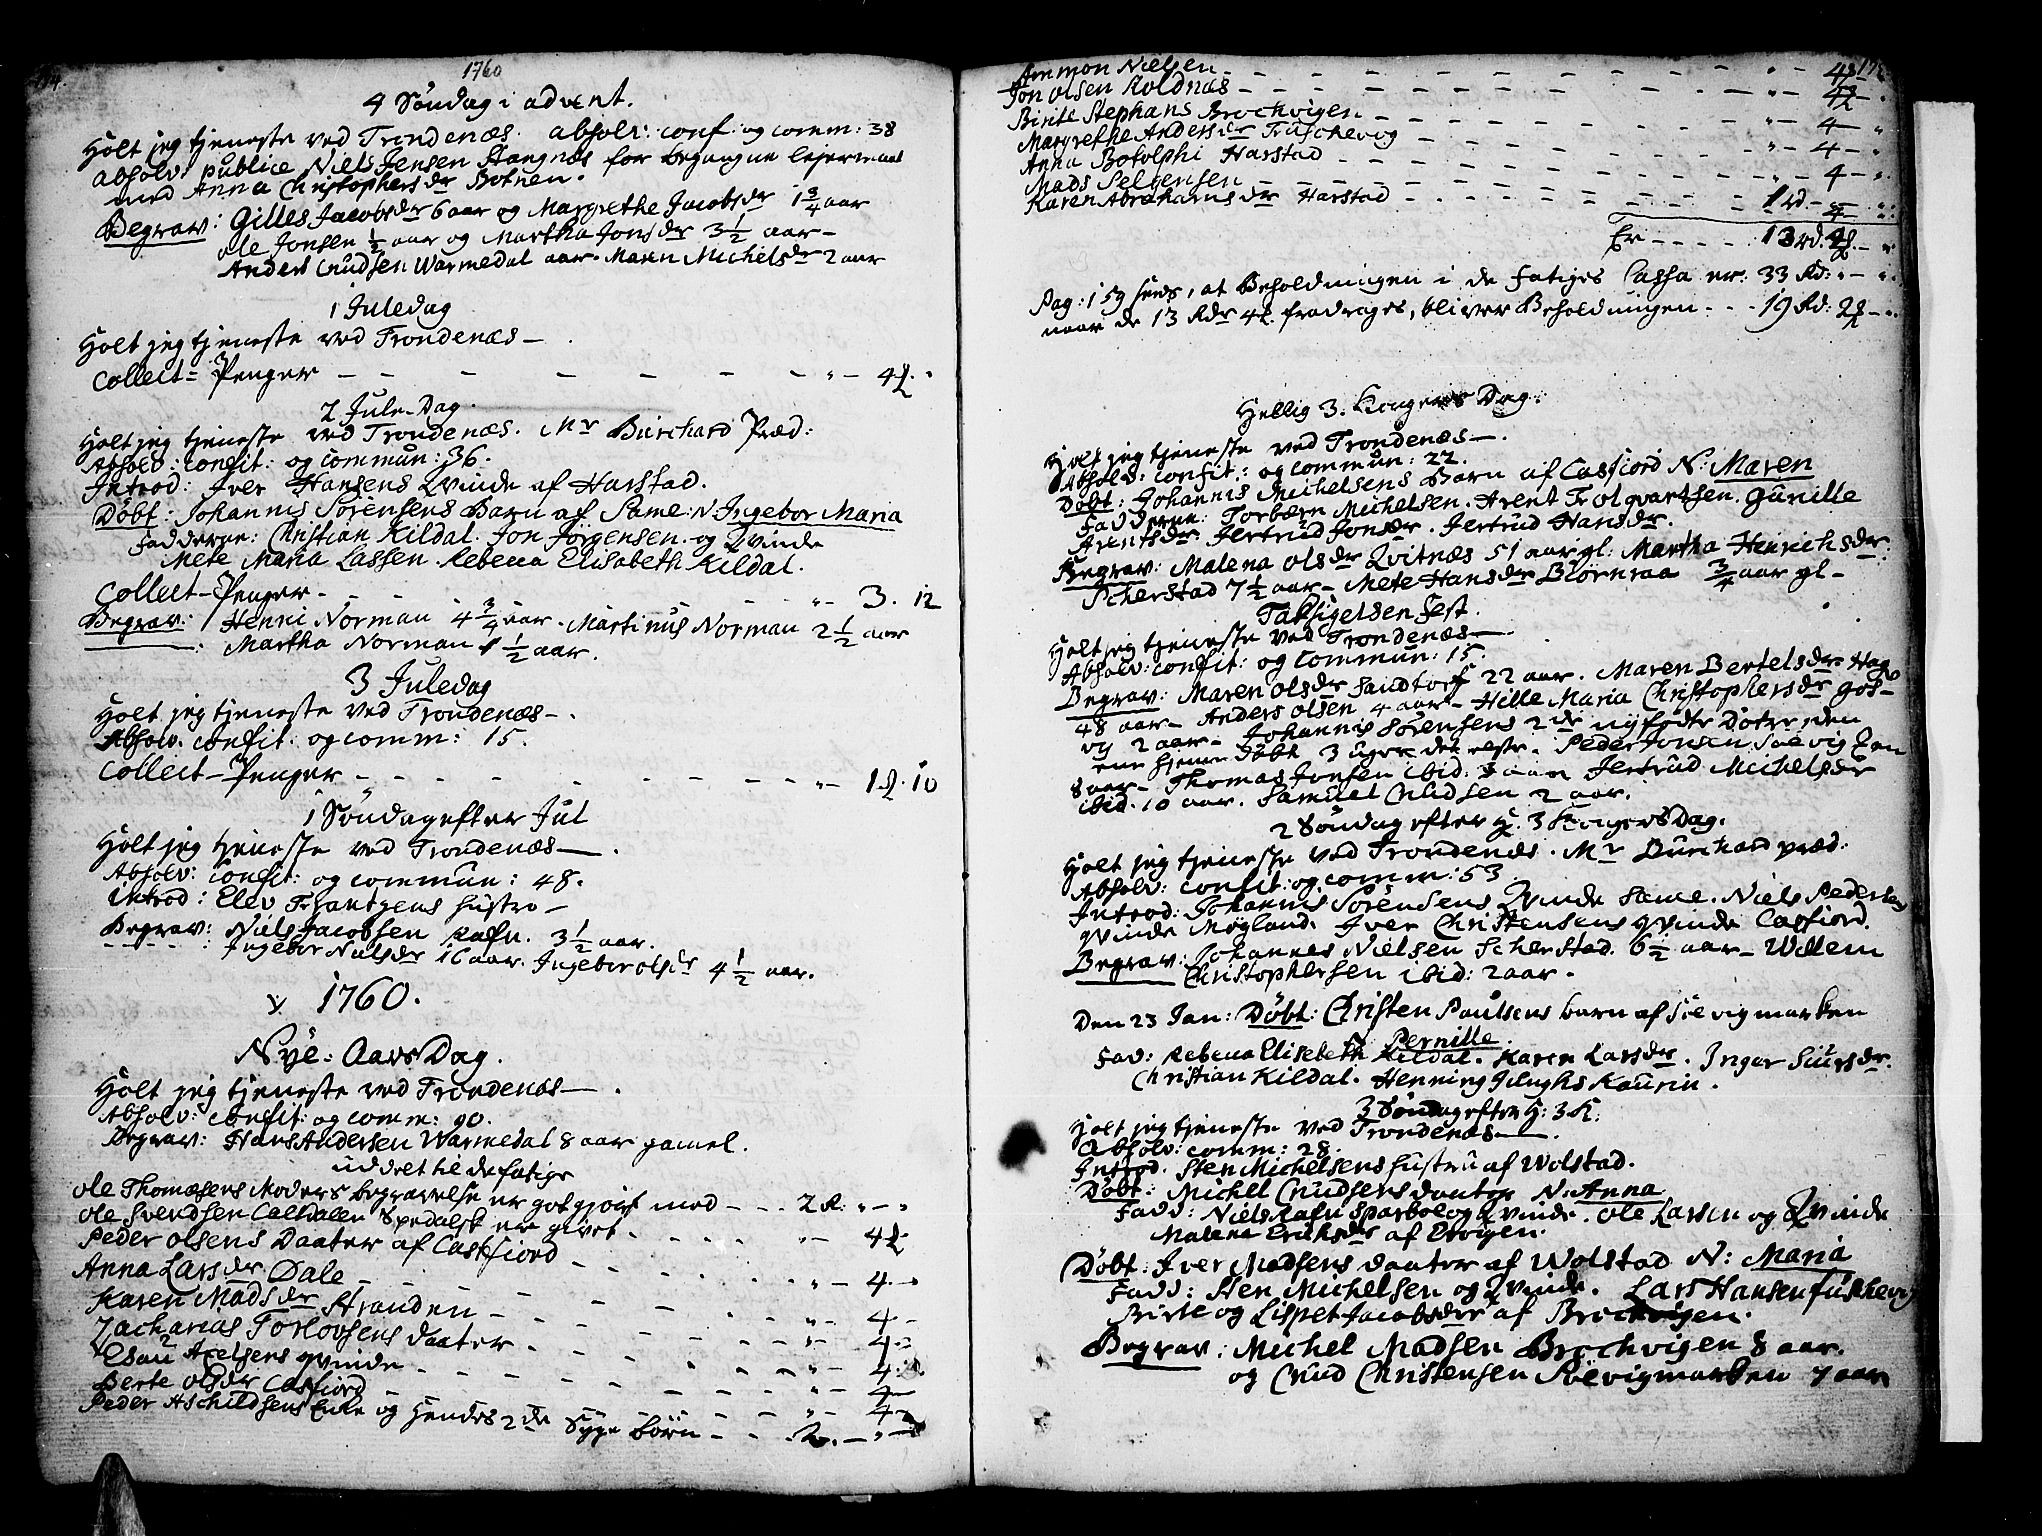 1760
4 Søndag i advent.
Holt jeg tjeneste ved Trondenæs. absolv: conf: og comm: 38
absolv: publice Niels Jensen Stangnæs for begangne lejermaal
med Anna Christophersdr Botnen.
Begrav: Gilles Jacobsdr 6 aar og Margrethe Jacobsdr 1 3/4 aar
Ole Jonsen 1/2 aar og Martha Jonsdr 3 1/2 aar –
Anders Cnudsen Warmedal aar. Maren Michelsdr 2 aar
1 Juledag
Holt jeg tjeneste ved Trondenæs –
Collect = Penger – – – – – – – " – 4 
2 Jule-Dag.
Holt jeg tjeneste ved Trondenæs. Mr Burchard Præd:
Absolv: confit: og commun: 36.
Introd: Iver Hansens Qvinde af Harstad.
Døbt: Johannis Sørensens Barn af Same: N. Ingebor Maria
Fadderne: Christian Kildal. Jon Jørgensen og Qvinde
Mete Maria Lassen. Rebecca Elisabeth Kildal.
Collect – Penger – – – – – " – 3. 12
Begrav: Henric Norman 4 3/4 aar. Martinus Norman 2 1/2 aar
: Martha Norman 1 1/2 aar.
3 Juledag
Holt jeg tjeneste ved Trondenæs –.
Absolv. confit: og comm: 15.
Collect – Penger – – – – – – – " – 1. 10
1 Søndag efter Jul
Holt jeg tjeneste ved Trondenæs –.
Absolv: confit: og commun: 48.
Introd: Elev Frantzens hustro –
Begrav: Niels Jacobsen Rafn. 3 1/2 aar.
Ingebor Nielsdr 16 aar. Ingebor Olsdr 4 1/2 aar.
1760.
Nye: Aars Dag.
Holt jeg tjeneste ved Trondenæs –.
Absolv: confit: og comm: 90.
Begrav: Hans Andersen Warmedal 8 aar gamel.
uddelt til de fatige
Ole Thomæsens Moders begravelse er gotgjort med – – – 2 R: " – "
Ole Svendsen Caltdalen Spedalsk er givet – – – " – 4
Peder Olsens Daater af Casfiord
Anna Larsdr Dale – – – – – " – 4 –
Karen Madsdr Stranden – – – – " – 4 –
Zacharias Torlovsens daater – – – " – 4 –
Esau Axelsens qvinde – – – – " – 4
Berte Olsdr Casfiord – – – – " – 4 –
Peder Aschildsens Enke og hendes 2de Syge børn – – – 2. – " –
Ammon Nielsen – – – – – " – 4
Jon Olsen Roldnæs – – – – – " – 4
Birite Stephans Brochvigen – – – – " – 4 – "
Margrethe Andersdr – – – – " – 4 – "
Anna Botolphi Harstad – – – – " – 4 – "
Mads
Karen Abrahamsdr Harstad – – – 1 rd – "
Er – – – – 13 rd. 4 – "
Pag: 159 sees, at Beholdningen i de fatiges Cassa er: 33 Rd: " – "
naar de 13 Rdr 4 fradrages, bliver Beholdningen – – – 19 Rd: 2 – "
Hellig 3. Kongers Dag.
Holt jeg tjeneste ved Trondenæs –.
Absolv: confit: og commun: 22.
Døbt: Johannis Michelsens Barn af Casfiord N: Maren
Fadderne: Torbærn Michelsen. Arent Trolgvartsen. Gunille
Arentsdr. Jertrud Jonsdr. Jertrud Hansdr.
Begrav: Malena Olsdr Qvitnæs 51 aar gl: Martha Henrichsdr
Scherstad 7 1/2 aar – Mete Hansdr Biørnraa 3/4 aar gl –
Taksigelsen Fest.
Holt jeg tjeneste ved Trondenæs –.
Absolv: confit: og commun: 15.
Begrav: Maren Olsdr Sandtorf 22 aar. Maren Bertelsdr
48 aar – Anders Olsen 4 aar – Hille Maria Christophersdr Gos-
vy 2 aar – Johannis Sørensens 2de nyfødte Døtre, den
ene hjemme Døbt 3 uger det reste. Peder Jonsen
8 aar – Thomas Jonsen ibid: 3 aar Jertrud Michelsdr
ibid. 10 aar. Samuel Cnudsen 2 aar.
2 Søndag efter H. 3 Kongers Dag.
Holt jeg tjeneste ved Trondenæs. Mr Burchard præd:
Absolv: confit: og comm: 53.
Introd: Johannis Sørensens Qvinde Same. Niels Pedersens
qvinde Møgland. Iver Christensens qvinde Casfiord.
Begrav: Johannes Nielsen Scherstad. 6 1/2 aar – Willem
Christophersen ibid: 2 aar.
Den 23 Jan: Døbt: Christen Paulsens barn af Sørvigmarken
N. Pernille
Fad: Rebecca Elisebeth Kildal. Karen Larsdr. Inger Siursdr.
Christian Kildal. Henning Junghs Kaurin.
3 Søndag efter H: 3 K:
Holt jeg tjeneste ved Trondenæs –.
Absolv: comm: 28.
Introd. Sten Michelsens hustru af Wolstad.
Døbt: Michel Cnudsens daater N: Anna
Fadd: Niels Rafn Sparboe og Qvinde. Ole Larsen og Qvinde
Malena Erichsdr af Ervigen.
Døbt: Iver Madsens daater af Wolstad N: Maria
Fadd: Sten Michelsen og Qvinde. Lars Hansen Fuskevog
Birte og Lispet Jacobsdr af Brochvigen.
Begrav: Michel Madsen Brochvigen 8 aar.
og Cnud Christensen Sørvigmarken 7 aar